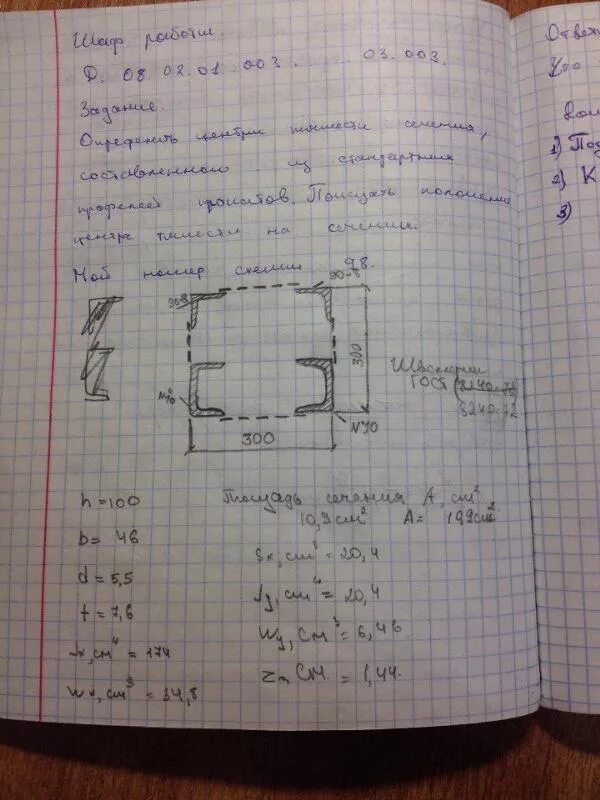 Шаф работы.
D. 08. 02. 01. 003 ... . . 03. 003.
Задание.
Определить центры тяжести сечения,
составленного из стандартных
профилей прокатов. Показать положения
центра тяжести на сечении.
Мой номер схемы 98.
90×8
300
Швеллеры
ГОСТ 8240-72
8240-72
№10
№10
300
h = 100
b = 46
d = 5,5
t = 7,6
Jx, см⁴ = 174
Wx, см³ = 34,8
Площадь сечения A, см²
10,9 см² A = 10,9 см²
Sx, см³ = 20,4
Jy, см⁴ = 20,4
Wy, см³ = 6,46
Zo, см. = 1,44.
Что
1) Под
2) К
3)